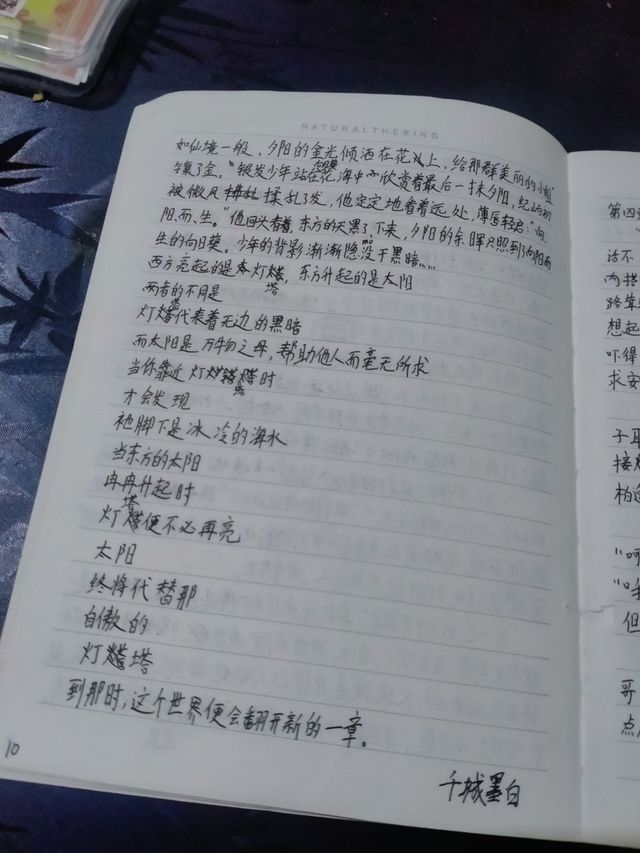 NATURALTHEKING
如仙境一般，夕阳的金光倾洒在花海上，给那群美丽的小
镶了金。"银发少年站在花海中欣赏着最后一抹夕阳，
被微风揉乱了发，他定定地看着远处，薄唇轻启："向
阳而生。"他回头看着，东方的天黑了下来，夕阳的余晖只照到了向阳而
生的向日葵。少年的背影渐渐隐没于黑暗……
西方亮起的是灯塔，东方升起的是太阳
两者的不同是
灯塔代表着无边的黑暗
而太阳是万物之母，帮助他人而毫无所求
当你靠近灯塔时
才会发现
祂脚下是冰冷的海水
当东方的太阳
冉冉升起时
灯塔便不必再亮
太阳
终将代替那
自傲的
灯塔
到那时，这个世界便会翻开新的一章。
千城墨白
10
第四
话不
内搭
路靠
想起
吓得
求安
子耳
接
柏
"呼
"
但
哥
点